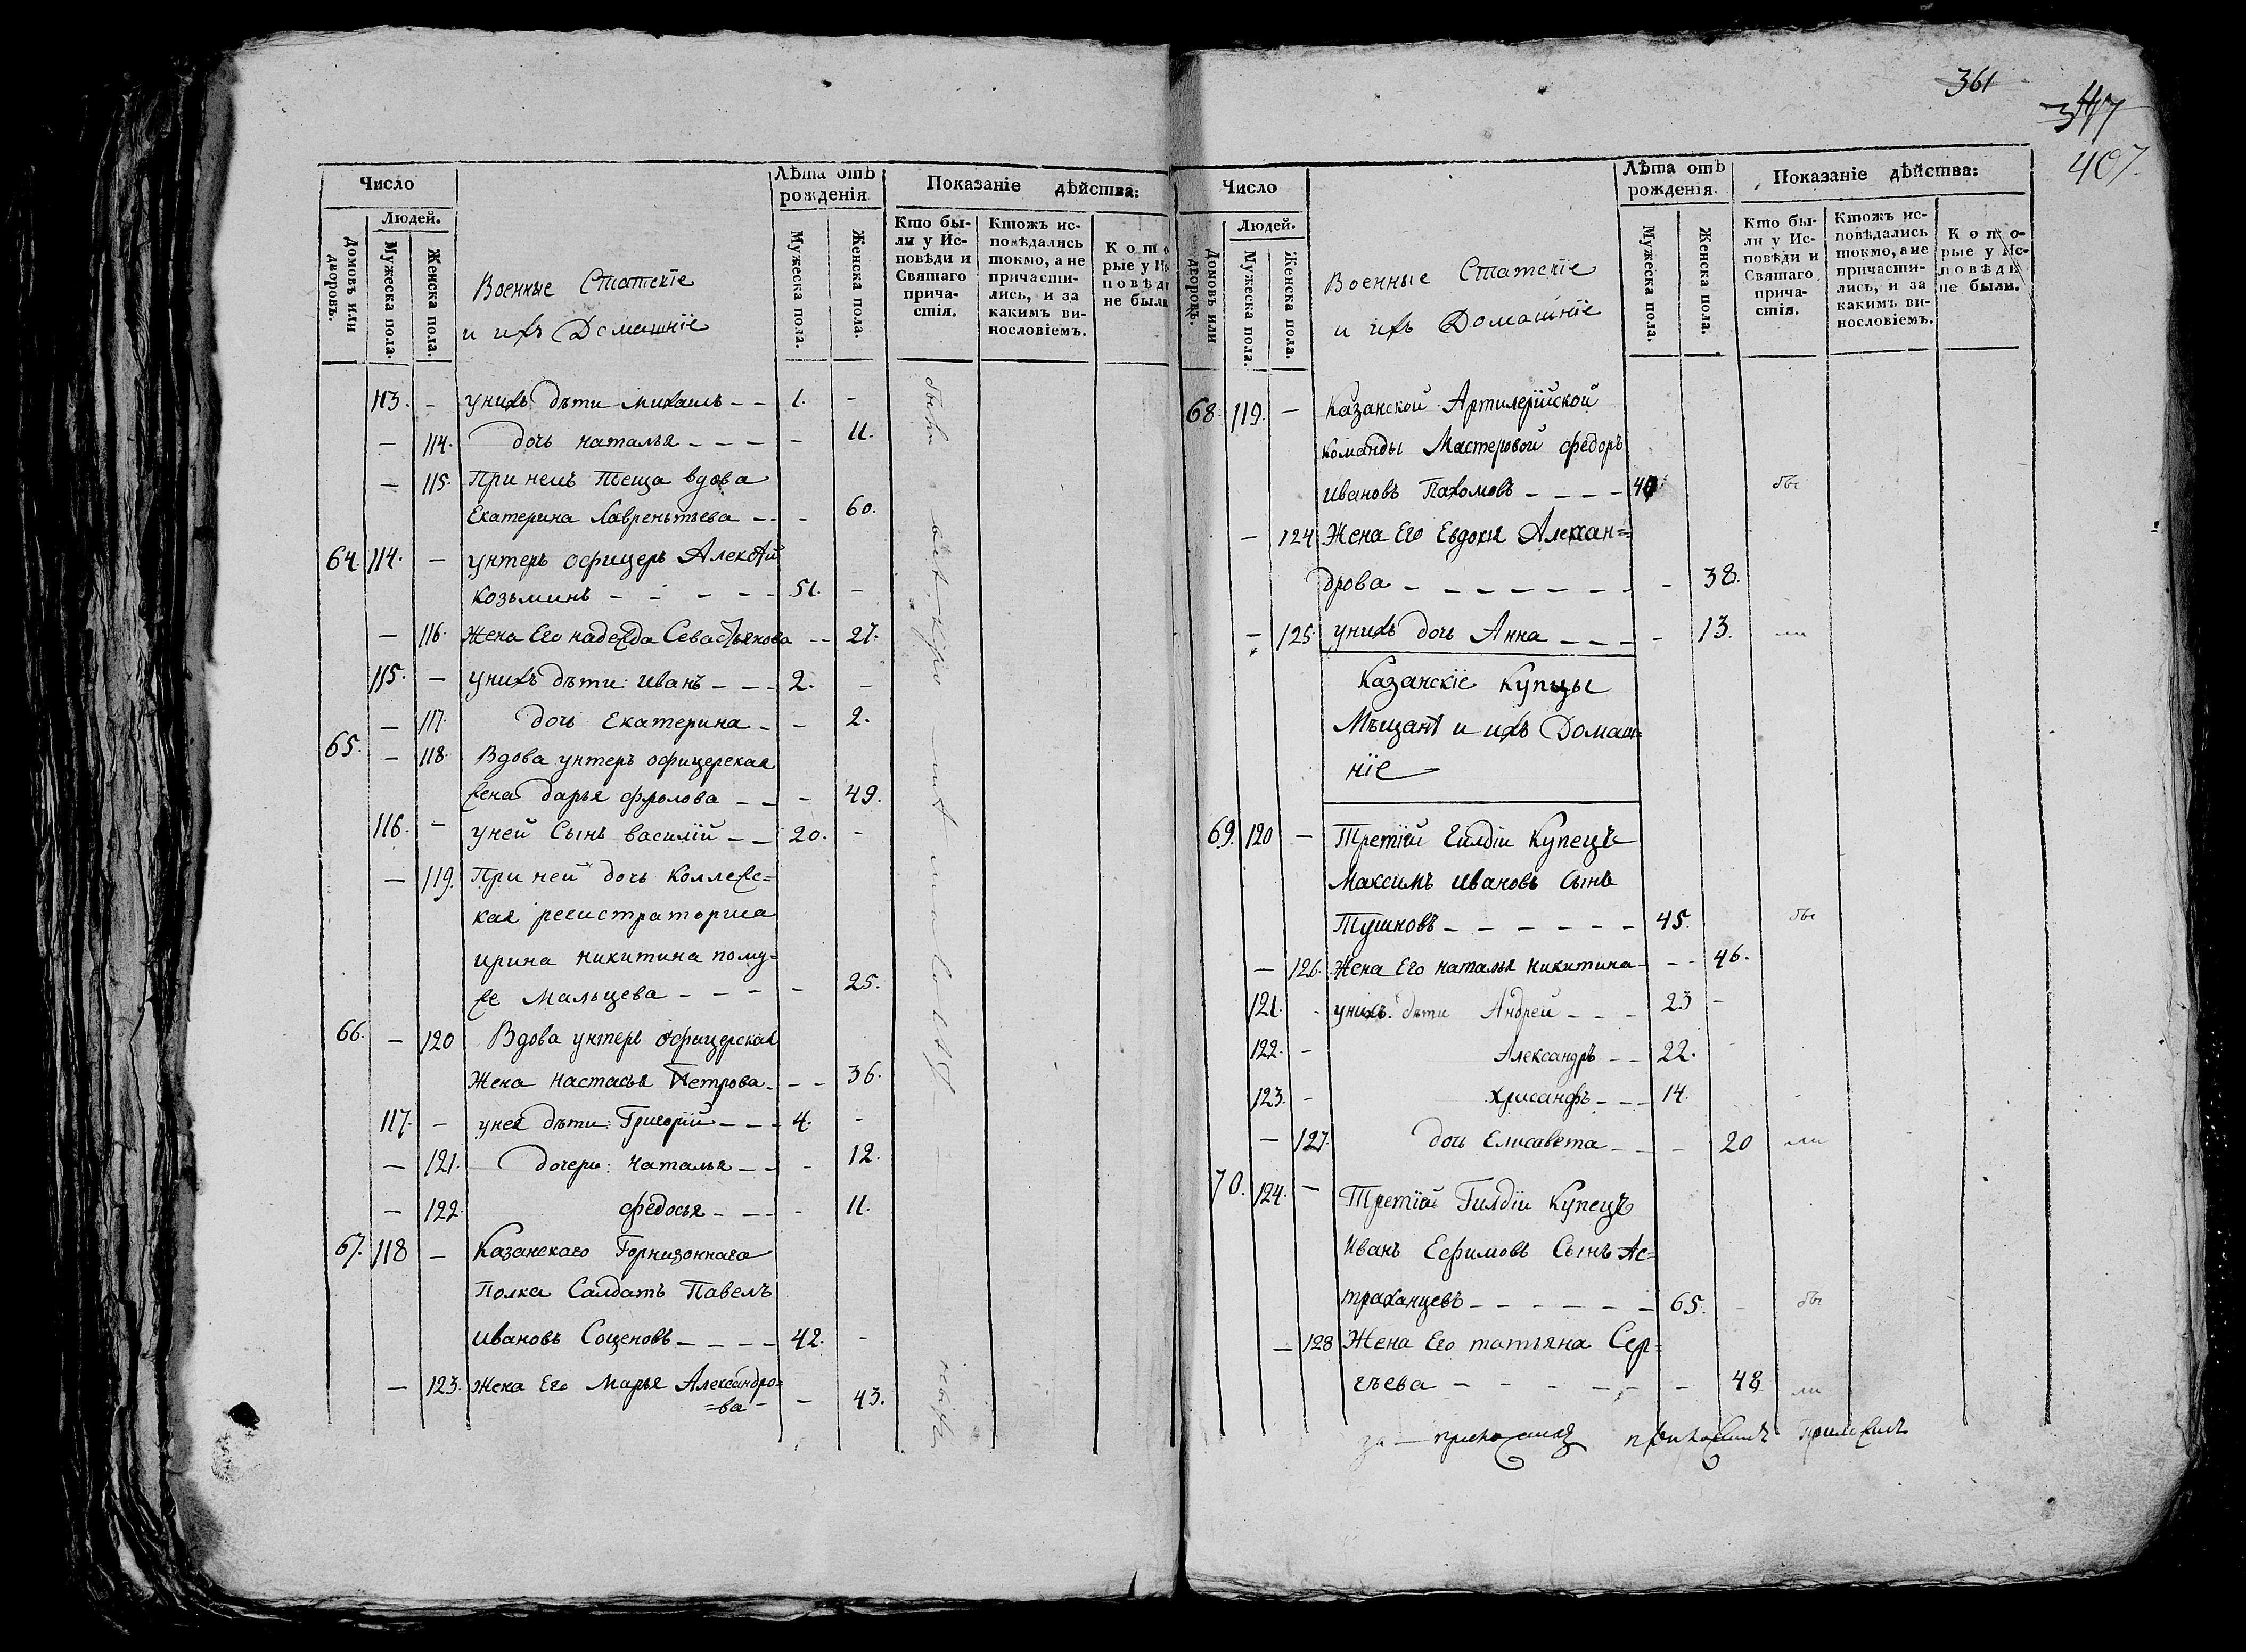 Число
Людей.
Домовъ или дворовъ.
Мужеска пола.
Женска пола.
Военные Статскіе
и ихъ Домашніе
Лѣта отъ
рожденія
Мужеска пола.
Женска пола.
Показаніе дѣйства:
Кто бы-
ли у Ис-
повѣди и
Святаго
прича-
стія.
Ктожъ ис-
повѣдались
токмо, а не
причасти-
лись, и за
какимъ ви-
нословіемъ.
Кото
рые у Ис
повѣди
не были
113. - унихъ дѣти Михаилъ - - 1. -
- 114. дочь наталья - - - - 11.
- 115. При немъ Теща вдова
Екатерина Лаврентьева - - - 60.
64. 114. - унтеръ офицеръ Алексѣй
Козьминъ - - - - - 51. -
- 116. Жена Его надежда Севастьянова - - 27.
115. - унихъ дѣти: Иванъ - - - 2. -
- 117. дочь Екатерина - - 2.
65. - 118. Вдова унтеръ офицерская
жена дарья фролова - - - 49.
116. - уней Сынъ василій - - 20. -
- 119. При ней дочь Коллежс=
кая регистраторша
ирина никитина по му=
жѣ Мальцева - - - - 25.
66. - 120 Вдова унтеръ офицерская
Жена настасья Петрова - - - 36.
117. - унея дѣти: Григорій - - - 4. -
- 121. дочери: Наталья - - - 12.
- 122. федосья - - - - 11.
67. 118 - Казанскаго Горнизоннаго
Полка Салдатъ Павелъ
ивановъ Соценовъ - - - - 42. -
- 123. Жена Его Марья Александро=
=ва - - 43.
361
407.
Число
Людей.
Домовъ или дворовъ.
Мужеска пола.
Женска пола.
Военные Статскіе
и ихъ Домашніе
Лѣта отъ
рожденія.
Мужеска пола.
Женска пола.
Показаніе дѣйства:
Кто бы-
ли у Ис-
повѣди и
Святаго
прича-
стія.
Ктожъ ис-
повѣдались
токмо, а не
причасти-
лись, и за
какимъ ви-
нословіемъ.
Кото-
рые у Ис-
повѣди
не были.
68. 119. - Казанской Артилерійской
команды Мастеровой федоръ
ивановъ Пахомовъ - - - - бы
- 124 Жена Его Евдокия Алексан=
дрова - - - - - - - - 38.
- 125. унихъ дочь Анна - - - - 13. ли
Казанскіе купцы
Мѣщанѣ и ихъ Домаш=
ніе
69. 120 - Третій Гилдіи Купецъ
Максимъ ивановъ Сынъ
Тушновъ - - - - - - 45. бы
- 126. Жена Его наталья никитина - - - 46.
121. - унихъ дѣти Андрей - - - 23 -
122. - Александръ - - 22.
123. - Хрисанфъ - - - 14.
- 127. дочь Елисавета - - - 20 ли
70. 124. - Третій Гилдіи Купецъ
Иванъ Ефимовъ Сынъ Ас=
траханцевъ - - - - - - 65. - бы
- 128 Жена Его татьяна Сер=
гѣева - - - - - - 48 ли